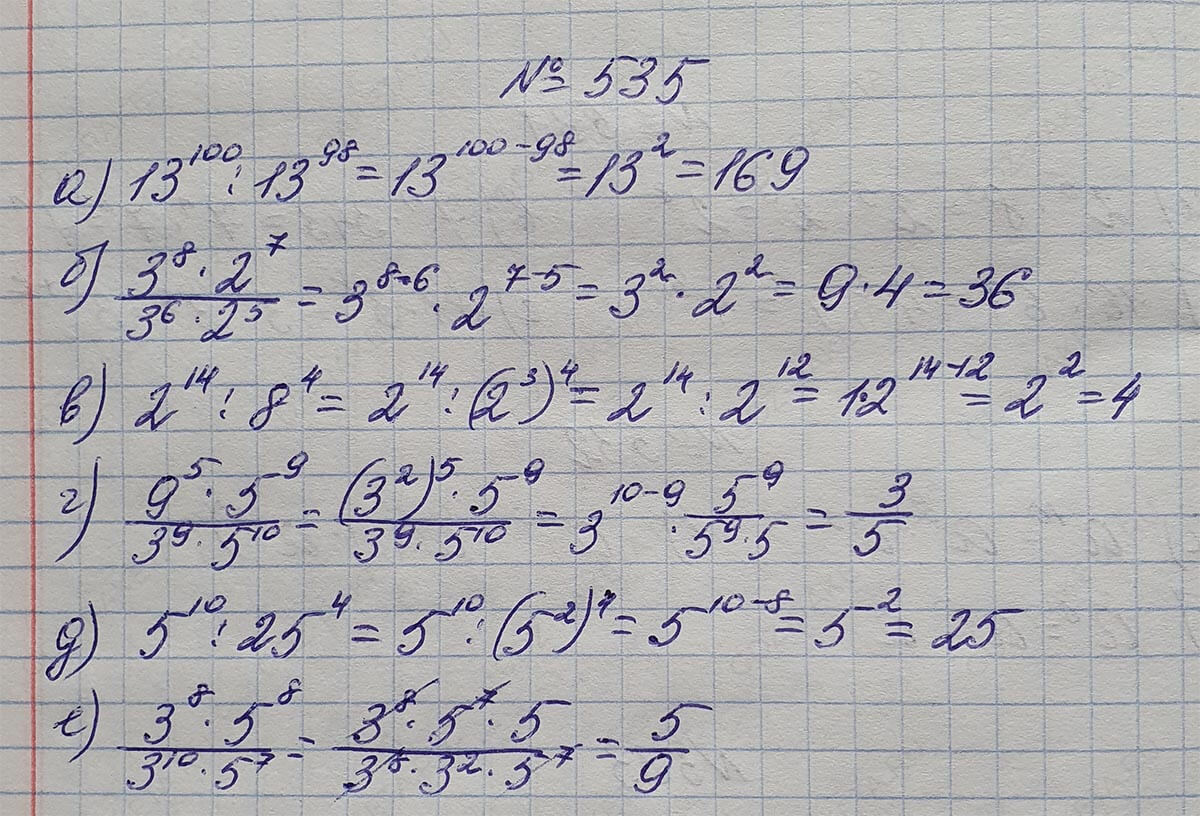 № 535
а) 13¹⁰⁰ : 13⁹⁸ = 13¹⁰⁰⁻⁹⁸ = 13² = 169
б) (3⁸ · 2⁷)/(3⁶ · 2⁵) = 3⁸⁻⁶ · 2⁷⁻⁵ = 3² · 2² = 9 · 4 = 36
в) 2¹⁴ : 8⁴ = 2¹⁴ : (2³)⁴ = 2¹⁴ : 2¹² = 1·2¹⁴⁻¹² = 2² = 4
г) (9⁵ · 5⁹)/(3⁹ · 5¹⁰) = ((3²)⁵ · 5⁹)/(3⁹ · 5¹⁰) = 3¹⁰⁻⁹ · 5⁹/(5⁹ · 5) = 3/5
д) 5¹⁰ : 25⁴ = 5¹⁰ : (5²)⁴ = 5¹⁰⁻⁸ = 5² = 25
е) (3⁸ · 5⁸)/(3¹⁰ · 5⁷) = (3⁸ · 5⁷ · 5)/(3⁸ · 3² · 5⁷) = 5/9